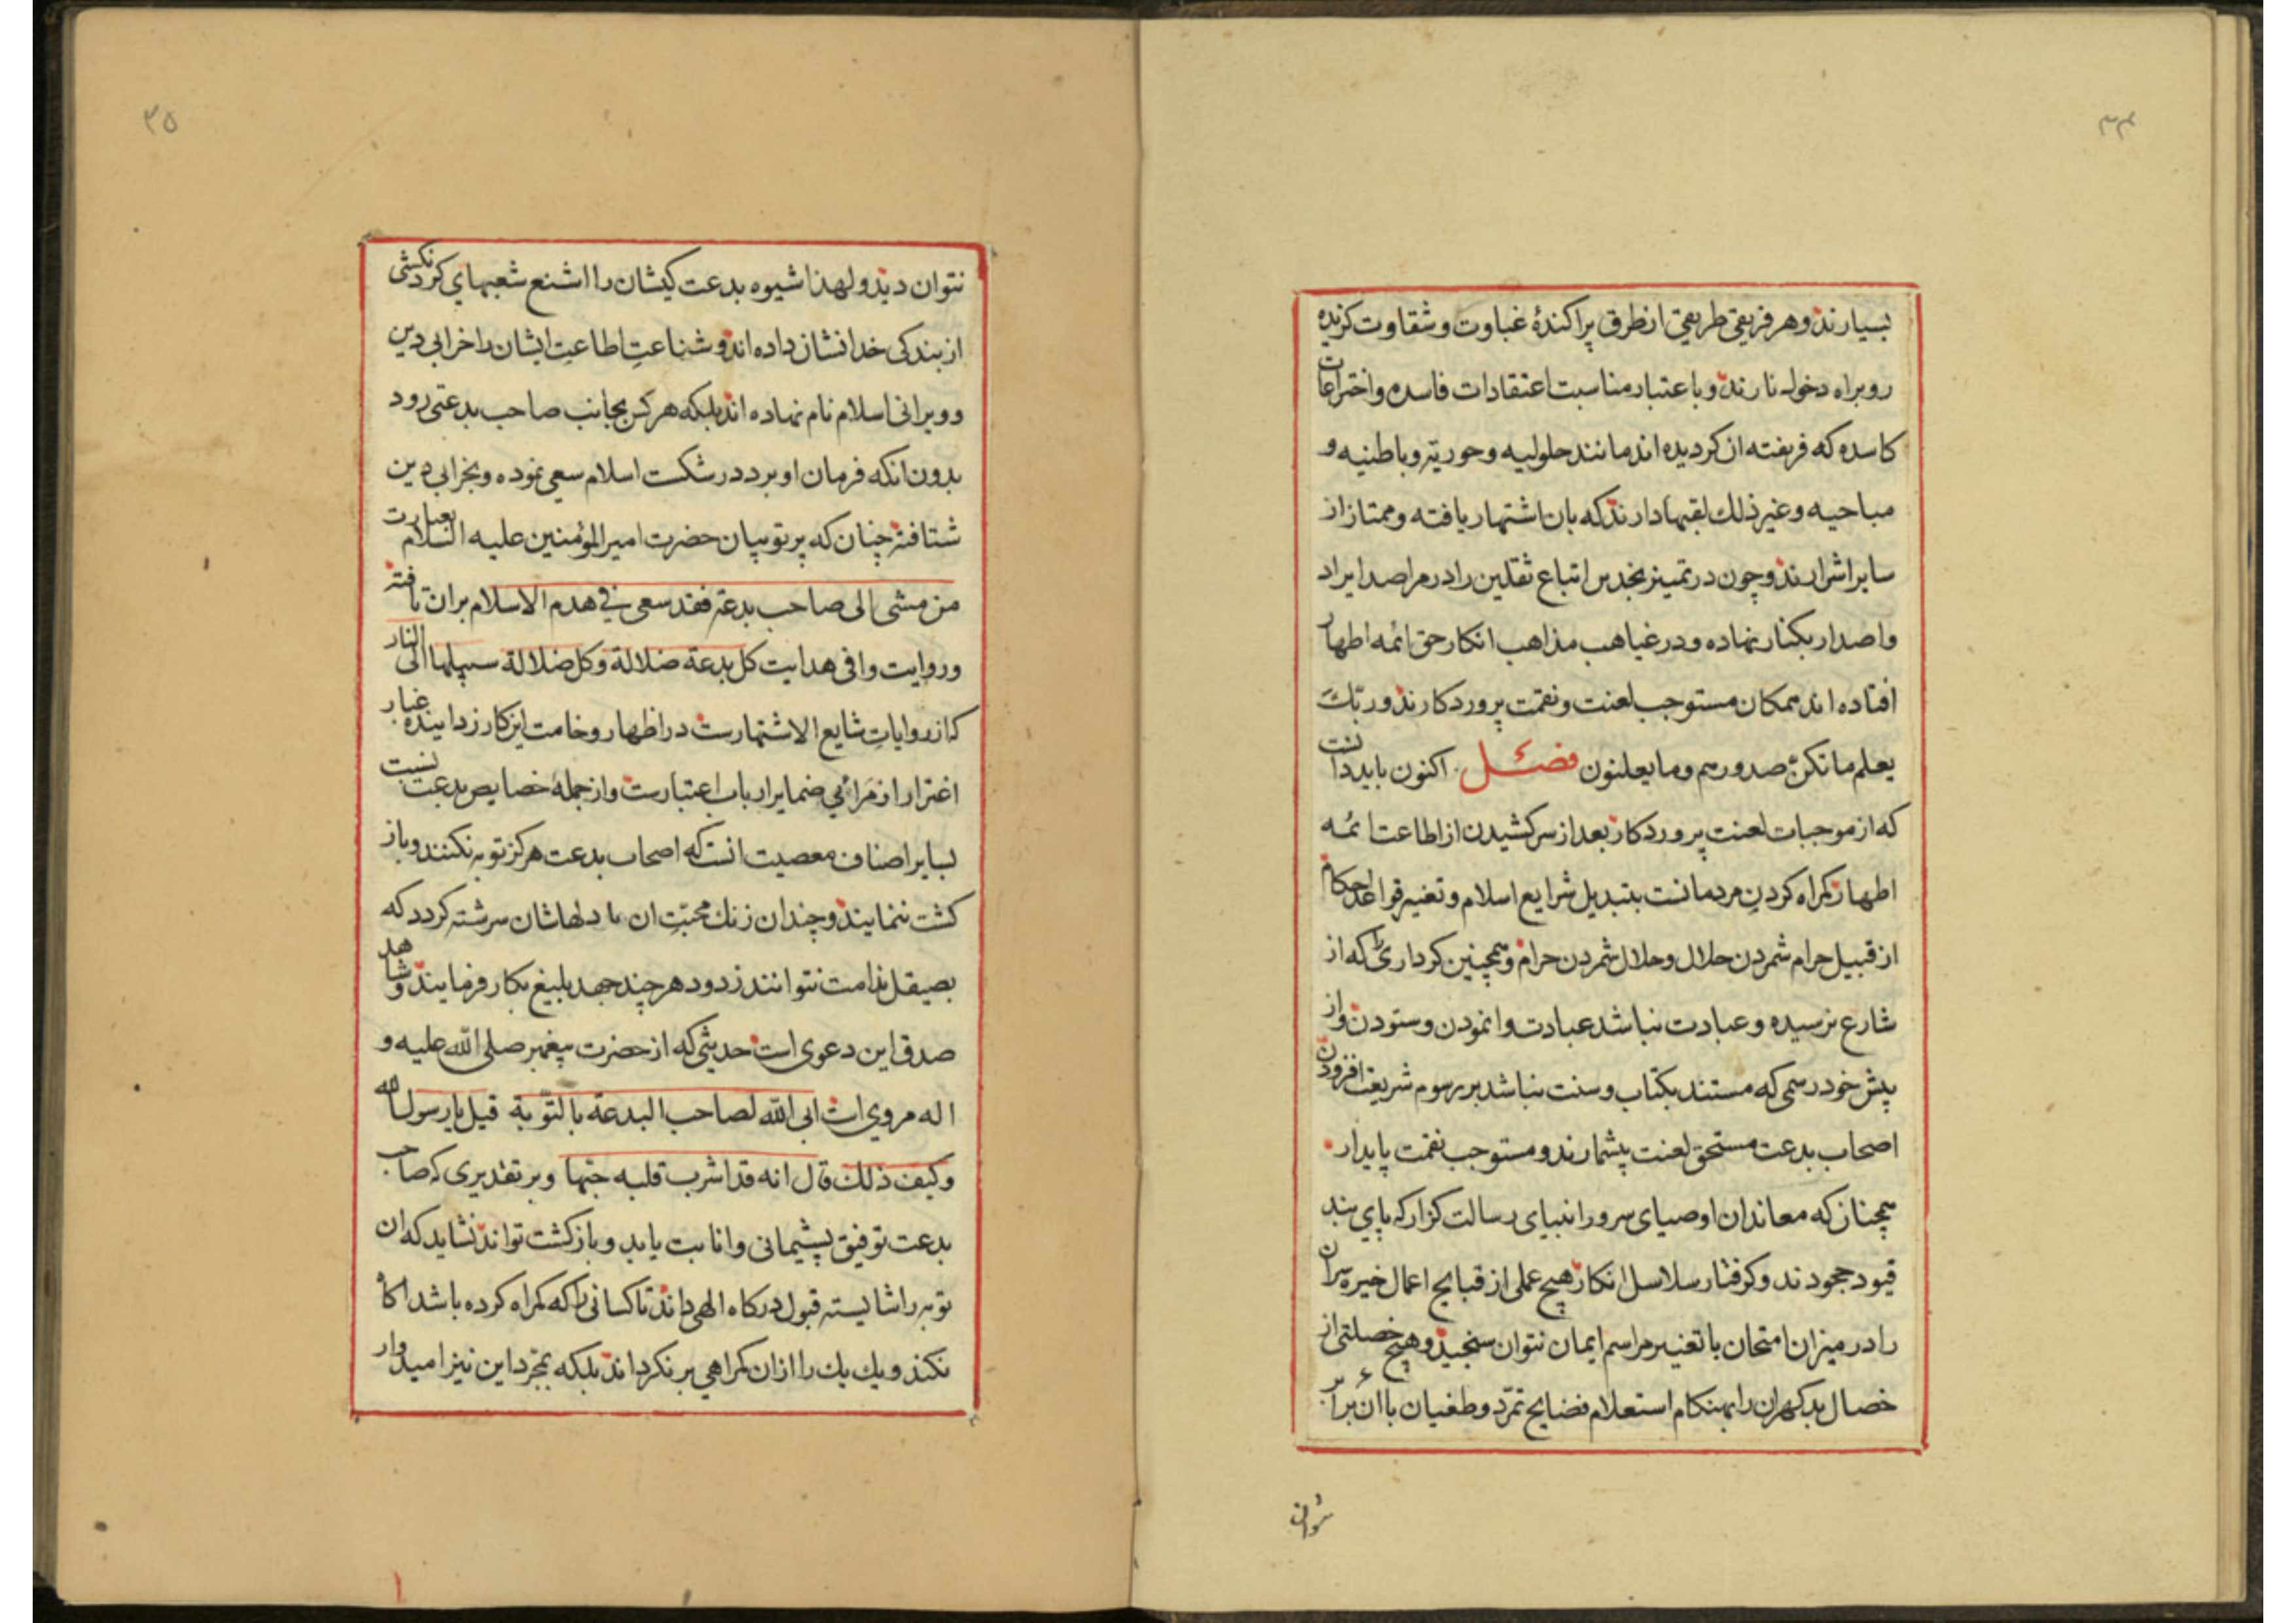 ۳۴
بسیارند وهر فریقی طریقی از طرق پراکندهٔ غباوت و شقاوت کزیده
روبراه دخول نارند وباعتبار مناسبت اعتقادات فاسده واختراعات
کاسده که فریفته ان کردیده اند مانند حلولیه وحوریّه وباطنیه و
مباحیه وغیر ذلك لقبها دارند که بان اشتهار یافته وممتاز از
سایر اشرارند وچون در تمییز نجدین اتباع ثقلین را در مراصد ایراد
واصدار بکنار نهاده ودر غیاهب مذاهب انکار حق ائمه اطهار
افتاده اند همکان مستوجب لعنت ونقمت پروردکارند وربّكَ
یعلم ما تکنّ صدورهم وما یعلنون فصل اکنون باید دانست
که از موجبات لعنت پروردکار بعد از سر کشیدن از اطاعت ائمه
اطهار کمراه کردنِ مردمانست بتبدیل شرایع اسلام وتغییر قواعد احکام
از قبیل حرام شمردن حلال وحلال شمردن حرام وهمچنین کرداری را که از
شارع نرسیده وعبادت نباشد عبادت وانمودن وستودن واز
پیش خود رسمی که مستند بکتاب وسنت نباشد بر رسوم شریعت افزودن
اصحاب بدعت مستحق لعنت بیشمارند ومستوجب نقمت پایدار
همچنان که معاندان اوصیای سرور انبیای رسالت کزار که پای بند
قیود جحودند وکرفتار سلاسل انکار هیچ عملی از قبایح اعمال خیره سران
را در میزان امتحان با تغییر مراسم ایمان نتوان سنجید وهیچ خصلتی از
خصال بدکهران را بهنکام استعلام فضایح تمرّد وطغیان با ان برابر
نتوان
۳۵
نتوان دید ولهذا شیوه بدعت کیشان را اشنع شعبهای کردنکشی
از بندکی خدا نشان داده اند وشناعتِ اطاعتِ ایشان را خرابی دین
وویرانی اسلام نام نهاده اند بلکه هر کس بجانب صاحب بدعتی رود
بدون انکه فرمان او برد در شکست اسلام سعی نموده وبخرابی دین
شتافته چنان که پرتو بیان حضرت امیر المؤمنین علیه السلام بعبارت
من مشی الی صاحب بدعة فقد سعی فی هدم الاسلام بران تافته
وروایت وافی هدایت کل بدعة ضلالة وکل ضلالة سبیلها الی النار
که از روایاتِ شایع الاشتهارست در اظهار وخامت این کار زداینده غبار
اغترار از مَرائیِ ضمایر ارباب اعتبارست واز جملهٔ خصایص بدعت نسبت
بسایر اصناف معصیت انست که اصحاب بدعت هرکز توبه نکنند وباز
کشت ننمایند وچندان زنك محبّتِ ان با دلهاشان سرشته کردد که
بصیقل ندامت نتوانند زدود هر چند جهد بلیغ بکار فرمایند وشاهد
صدق این دعوی است حدیثی که از حضرت پیغمبر صلی الله علیه و
اله مروی است ابی الله لصاحب البدعة بالتّوبة قیل یا رسول الله
وکیف ذلك قال انه قد اشرب قلبه حبّها وبر تقدیری که صاحب
بدعت توفیق پشیمانی وانابت یابد وبازکشت تواند نشاید که ان
توبه را شایسته قبول درکاه الهی داند تا کسانی را که کمراه کرده باشد اکاه
نکند ویك یك را ازان کمراهی بر نکرداند بلکه بمجرّد این نیز امیدوار